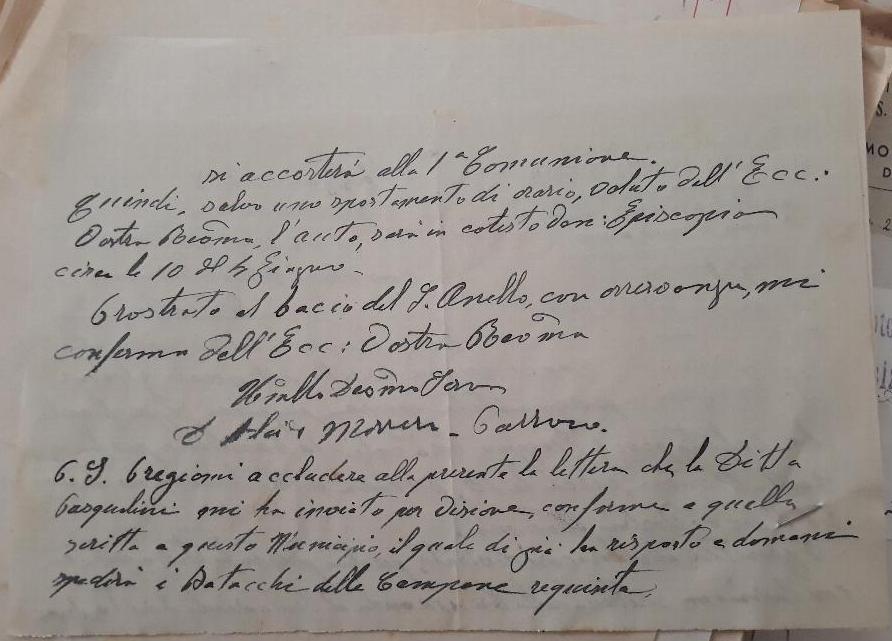 si accosterà alla 1ª Comunione.
Quindi, salvo uno spostamento di orario, voluto dall' Ecc:
Vostra Rev̄ma, l'auto, sarà in cotesto Ven: Episcopio
circa le 10 del 4 Giugno.
Prostrato al bacio del S. Anello, con osservanza, mi
confermo dell' Ecc: Vostra Rev̄ma
Servo
D. Parroco.
P. S. Pregiomi accludere alla presente la lettera che la Ditta
Pasqualini mi ha inviato per visione, conforme a quella
scritta a questo Municipio, il quale di già ha risposto e domani
spedirà i Batacchi delle Campane requisite.